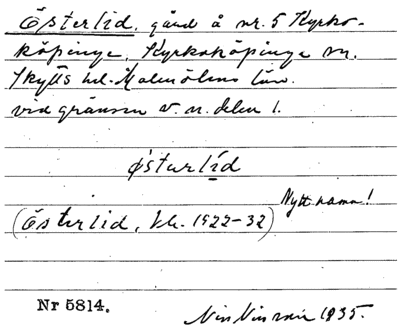 Österlid, gård å nr. 5 Kyrko-
köpinge, Kyrkoköpinge sn.
Skytts hd. Malmöhus län.
vid gränsen v. n. delen l.
østerlíd
Nytt namn!
(Österlid, kb. 1922-32)
Nr 5814.
1935.